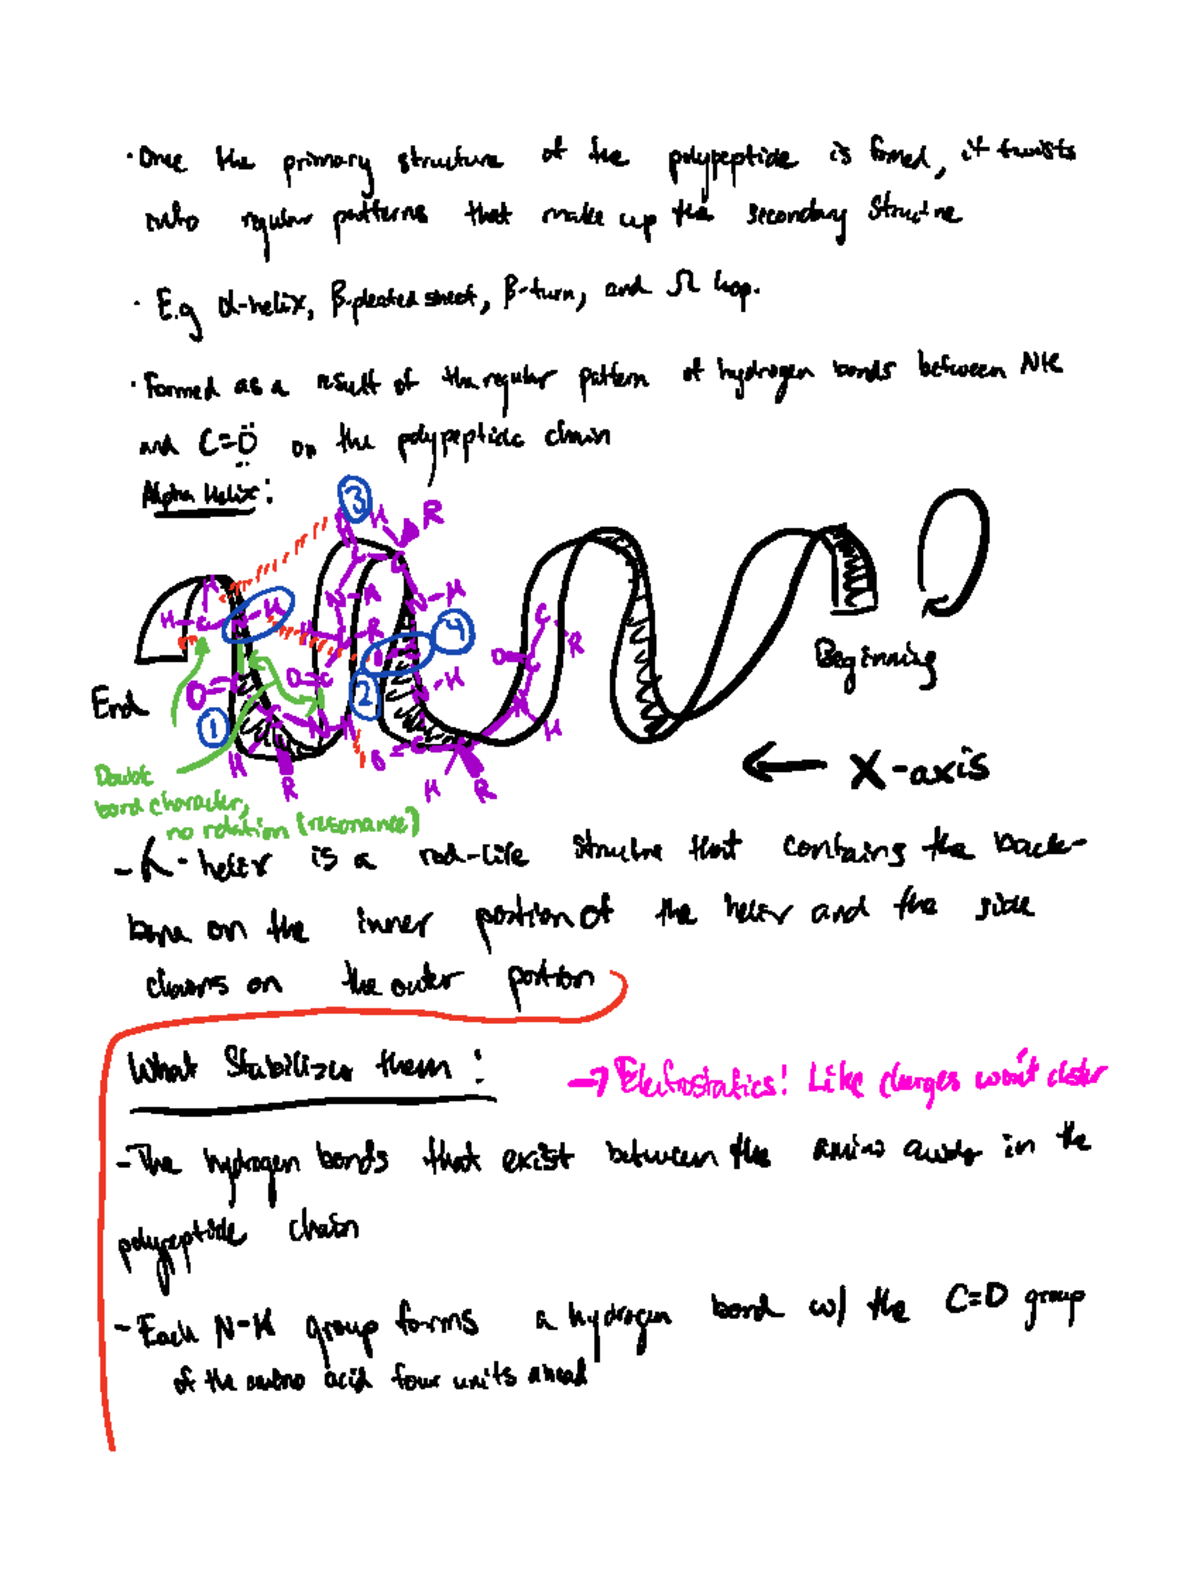 · Once the primary structure of the polypeptide is formed, it twists
into regular patterns that make up the secondary structure
· E.g α-helix, β-pleated sheet, β-turn, and Ω loop.
· Formed as a result of the regular pattern of hydrogen bonds between NH
and C=O on the polypeptide chain
Alpha Helix:
3
H R
H
H C C
N-H N-H
H-C N-H 4
R
O=C C
O=C
R
End
O=C 2 N-H
1 N H
H R
O=C
H R
N H
Beginning
← X-axis
Double
bond character,
no rotation (resonance)
- α-helix is a rod-like structure that contains the back-
bone on the inner portion of the helix and the side
chains on the outer portion
What Stabilizes them:
→ Electrostatics! Like charges won't cluster
- The hydrogen bonds that exist between the amino acids in the
polypeptide chain
- Each N-H group forms a hydrogen bond w/ the C=O group
of the amino acid four units ahead